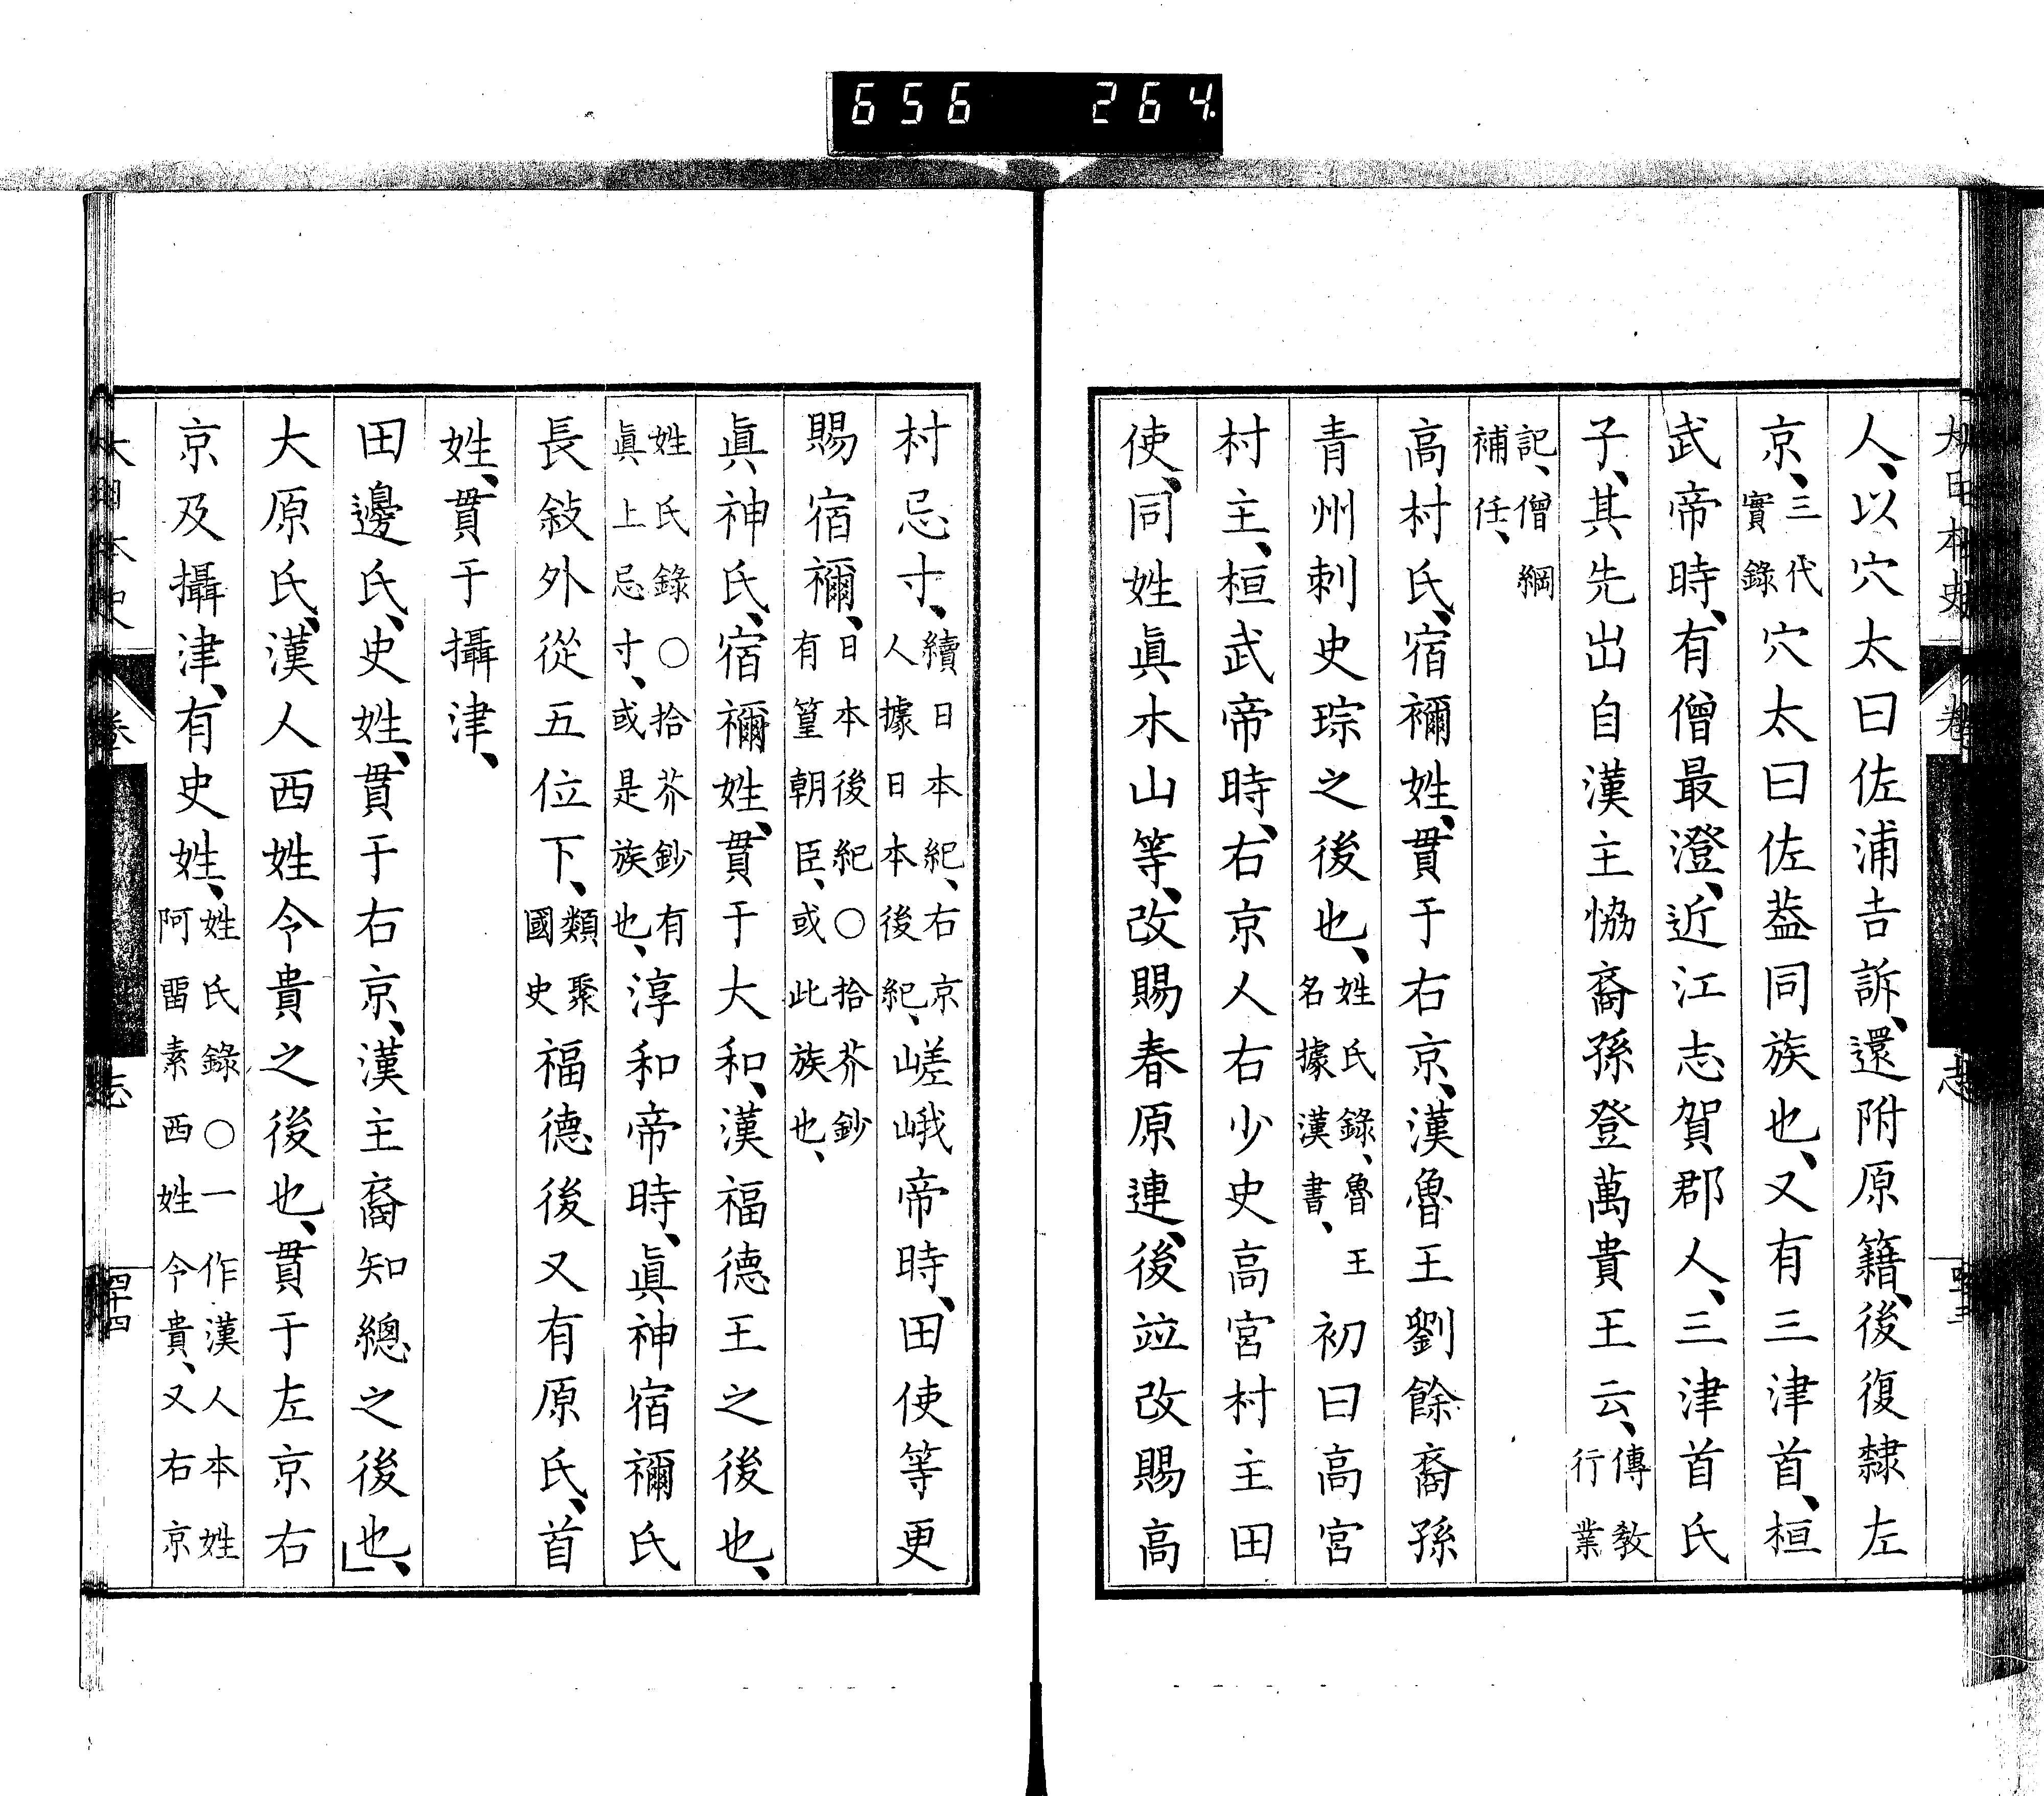 656 264
大日本史 卷 志
人、以穴太曰佐浦吉訴、還附原籍、後復隸左
京、三代實錄穴太曰佐葢同族也、又有三津首、桓
武帝時、有僧最澄、近江志賀郡人、三津首氏
子、其先出自漢主恊裔孫登萬貴王云、傳教行業
記、僧綱補任、
高村氏、宿禰姓、貫于右京、漢魯王劉餘裔孫
青州刺史琮之後也、姓氏錄、魯王名據漢書、初曰高宮
村主、桓武帝時、右京人右少史高宮村主田
使、同姓眞木山等、改賜春原連、後竝改賜高
村忌寸、續日本紀、右京人據日本後紀、嵯峨帝時、田使等更
賜宿禰、日本後紀○拾芥鈔有篁朝臣、或此族也、
眞神氏、宿禰姓、貫于大和、漢福德王之後也、
姓氏錄○拾芥鈔有眞上忌寸、或是族也、淳和帝時、眞神宿禰氏
長敍外從五位下、類聚國史福德後又有原氏、首
姓、貫于攝津、
田邊氏、史姓、貫于右京、漢主裔知總之後也、」
大原氏、漢人西姓令貴之後也、貫于左京右
京及攝津、有史姓、姓氏錄○一作漢人本姓阿畱素西姓令貴、又右京
大日本史 卷 志 四十四